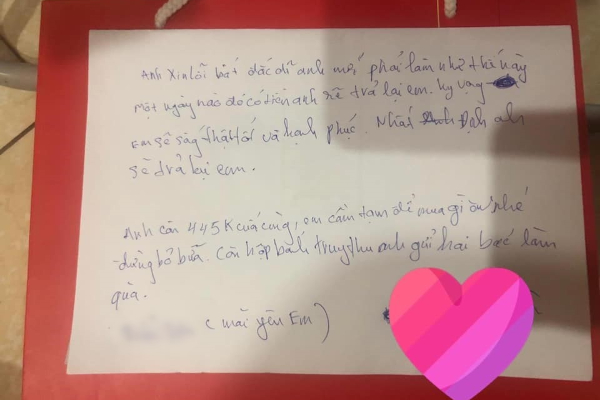 Anh Xin lỗi bất đắc dĩ anh mới phải làm như thế này
một ngày nào đó có tiền anh sẽ trả lại em. hy vọng
em sẽ sống thật tốt và hạnh phúc. Nhất định anh
sẽ trả lại em.
Anh còn 445K cuối cùng, em cầm tạm để mua gì ăn nhé
đừng bỏ bữa. Còn hộp bánh trung thu anh gửi hai bác làm
quà.
( mãi yêu Em )